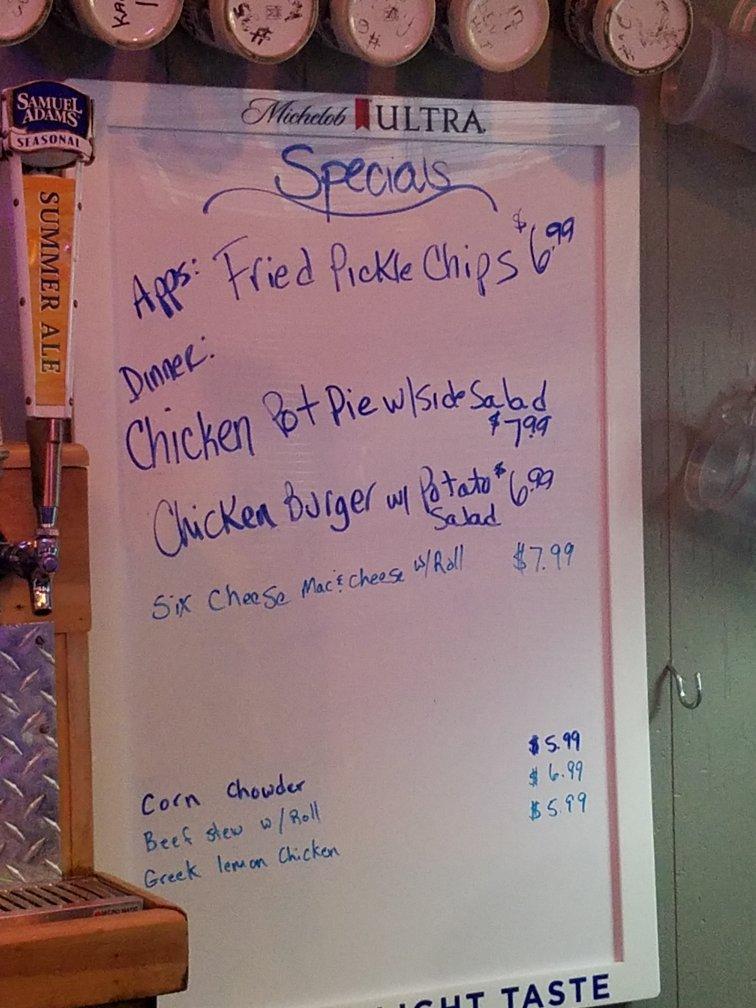 Michelob ULTRA
SAMUEL
ADAMS
SEASONAL
SUMMER ALE
Specials
Apps: Fried Pickle Chips $6.99
Dinner:
Chicken Pot Pie w/side Salad
$7.99
Chicken Burger w/ Potato $6.99
Salad
Six Cheese Mac & cheese w/Roll $7.99
Corn Chowder $5.99
Beef stew w/Roll $6.99
Greek lemon Chicken $5.99
LIGHT TASTE